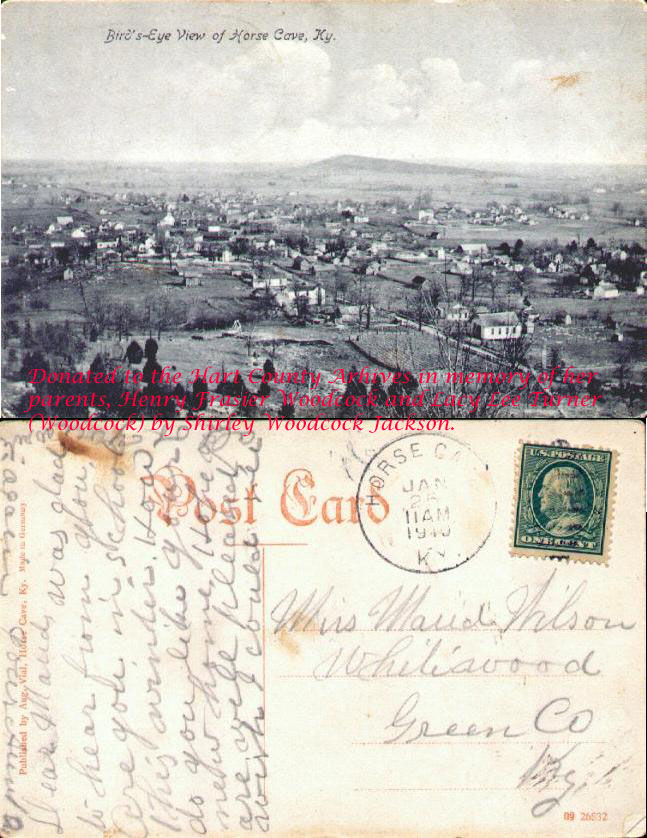 Bird's-Eye View of Horse Cave, Ky.
Donated to the Hart County Arhives in memory of her
parents, Henry Frasier Woodcock and Lucy Lee Turner
(Woodcock) by Shirley Woodcock Jackson.
Post Card
HORSE CA
JAN
11AM
1910
KY.
U.S. POSTAGE
ONE CENT
Miss Maud Wilson
Green Co
Ky
09 26532
Published by Aug. Vial, Horse Cave, Ky. Made in Germany
Dear Maud, was glad
to hear from you,
Are you in school
this winter. How
do you like your
new home,
are well pleased
wish I could